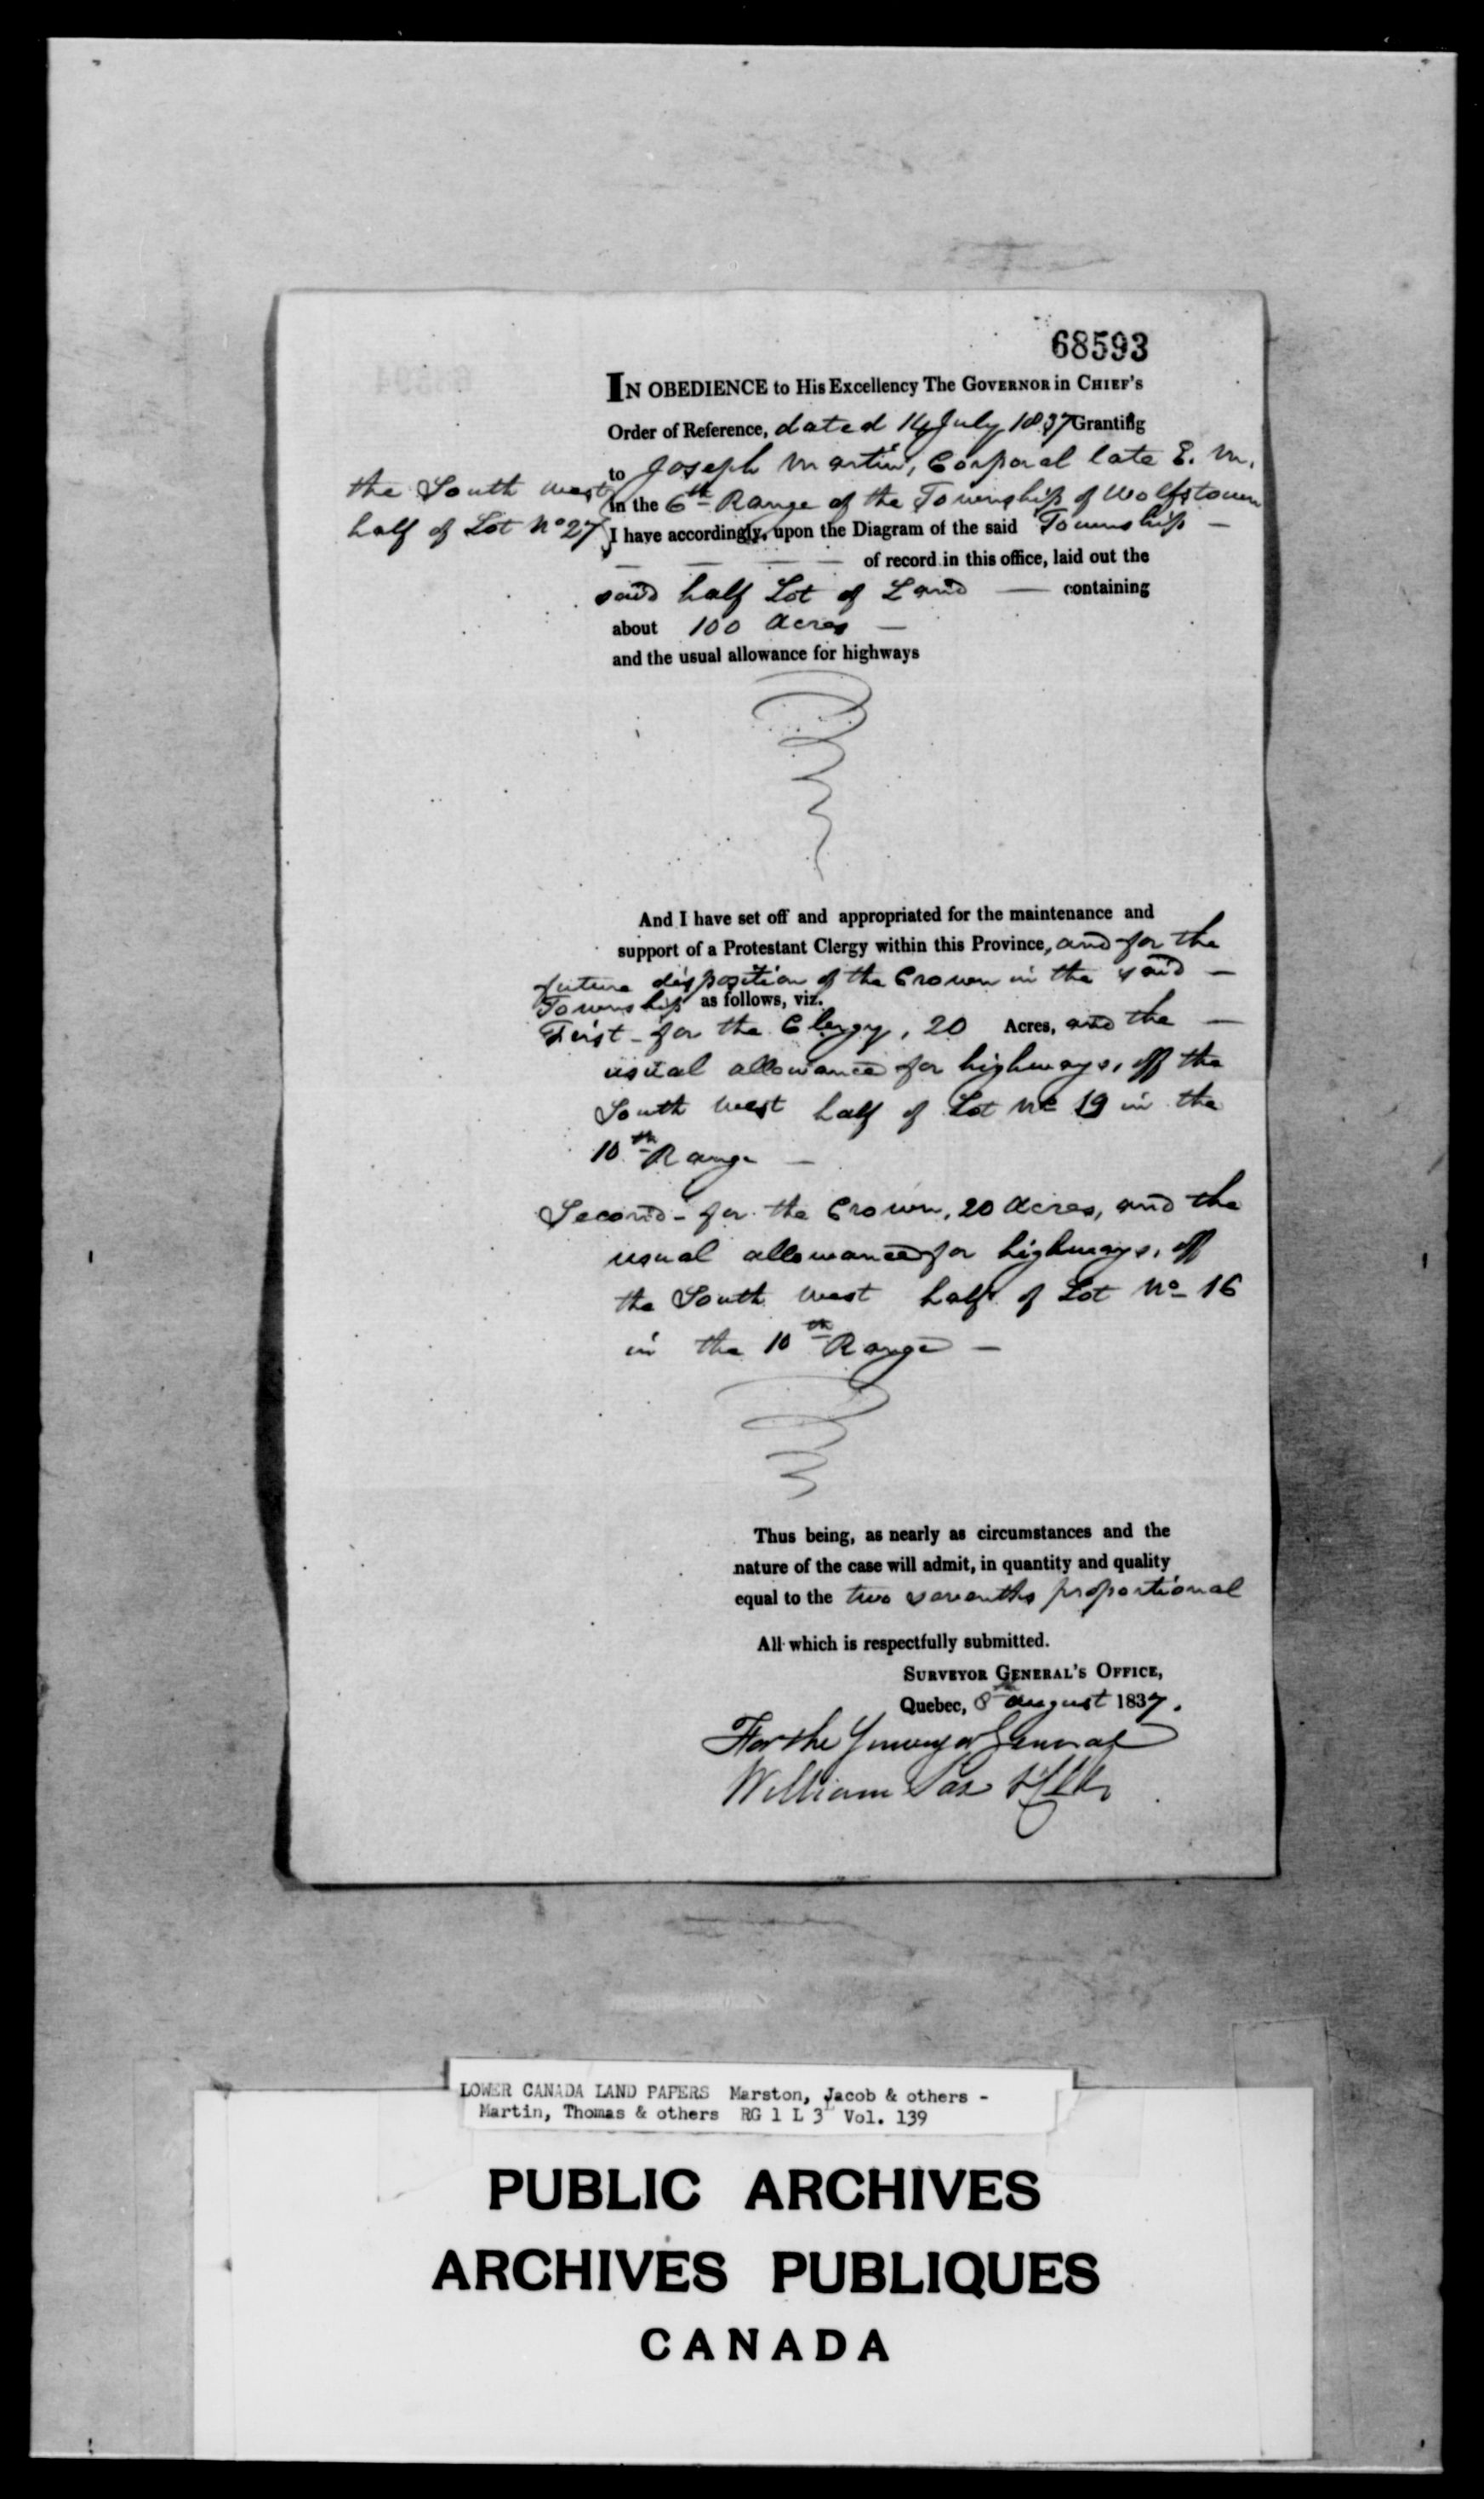 68593
IN OBEDIENCE to His Excellency The GOVERNOR in CHIEF'S
Order of Reference, dated 14 July 1837 Granting
to Joseph Martin, Corporal late E. M.
the South west
half of Lot No 27
in the 6th Range of the Township of Wolfstown
I have accordingly, upon the Diagram of the said Township —
— — — — of record in this office, laid out the
said half Lot of Land — containing
about 100 Acres —
and the usual allowance for highways
And I have set off and appropriated for the maintenance and
support of a Protestant Clergy within this Province, and for the
future disposition of the Crown in the said —
Township as follows, viz.
First - for the Clergy, 20 Acres, and the —
usual allowance for highways, off the
South west half of Lot No 19 in the
10th Range —
Second - for the Crown, 20 Acres, and the
usual allowance for highways, off
the South west half of Lot No 16
in the 10th Range —
Thus being, as nearly as circumstances and the
nature of the case will admit, in quantity and quality
equal to the two sevenths proportional
All which is respectfully submitted.
SURVEYOR GENERAL'S OFFICE,
Quebec, 8th August 1837.
For the Surveyor General
William Sax
LOWER CANADA LAND PAPERS Marston, Jacob & others -
Martin, Thomas & others RG 1 L 3L Vol. 139
PUBLIC ARCHIVES
ARCHIVES PUBLIQUES
CANADA